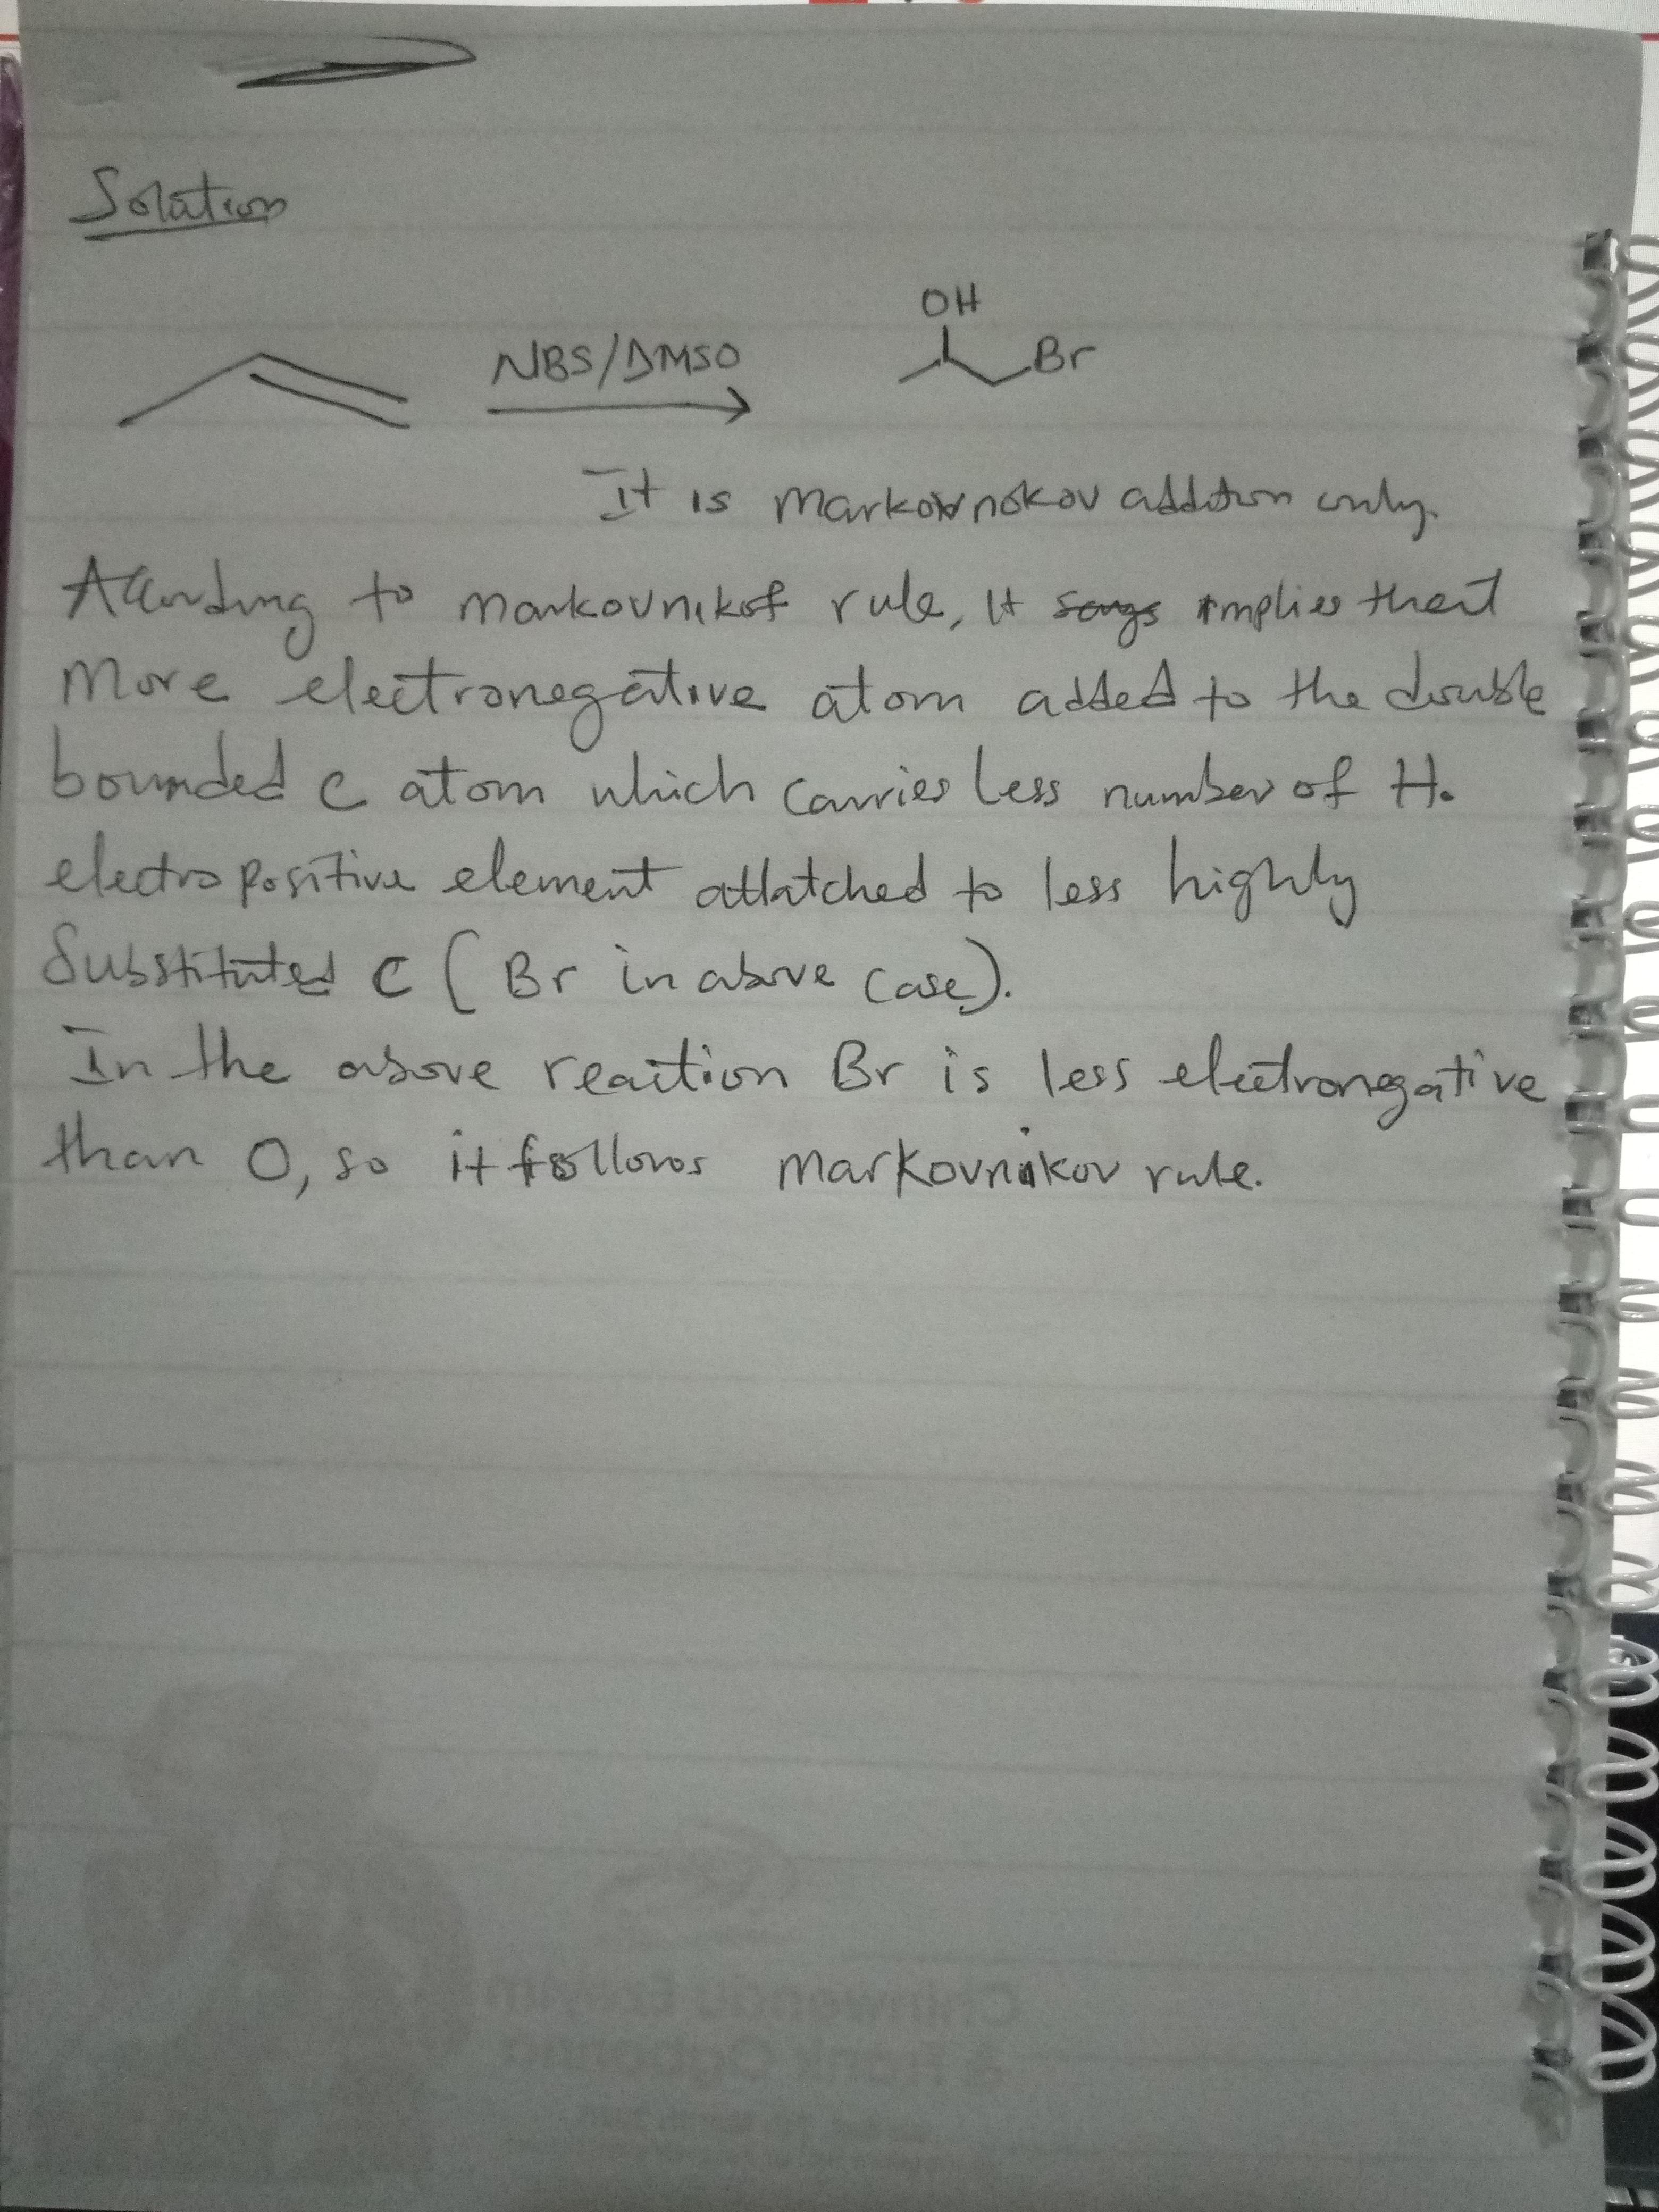 Solution
OH
NBS/DMSO
Br
It is Markownokov addition only.
According to markovnikof rule, It says implies that
More electronegative atom added to the double
bounded C atom which carries less number of H.
electropositive element attatched to less highly
Substituted C (Br in above case).
In the above reaction Br is less electronegative
than O, so it follows Markovnikov rule.